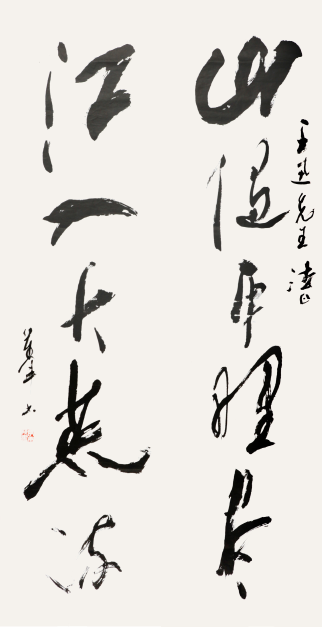 先生清正
山随平野尽
江入大荒流